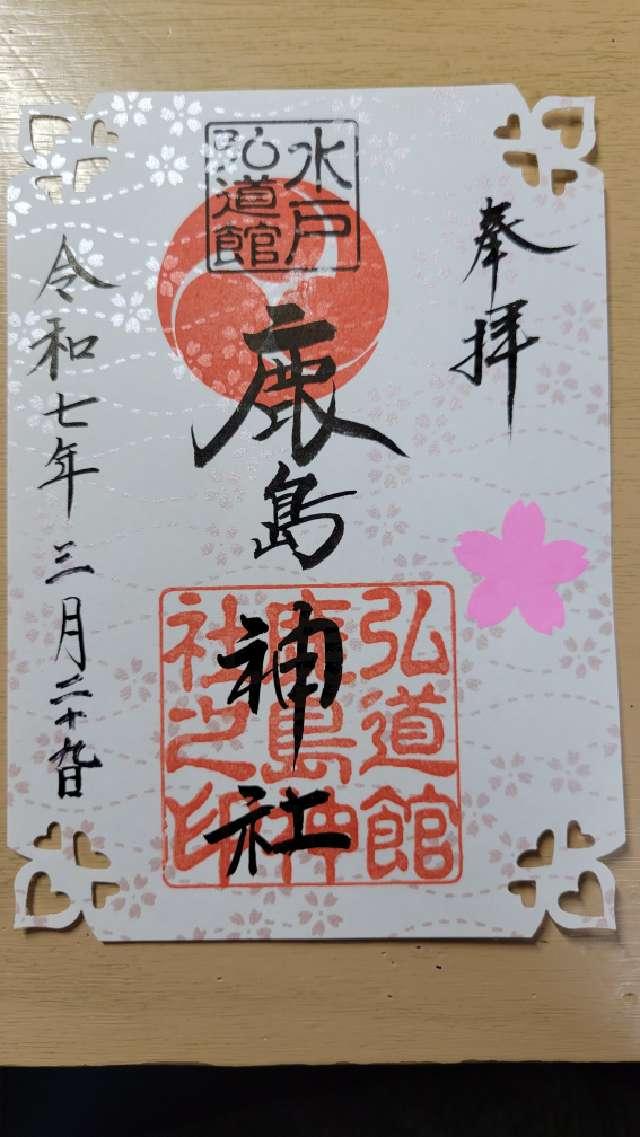 奉拝
水戸
弘道館
鹿島神社
弘道館
鹿島神
社之印
令和七年三月二十九日